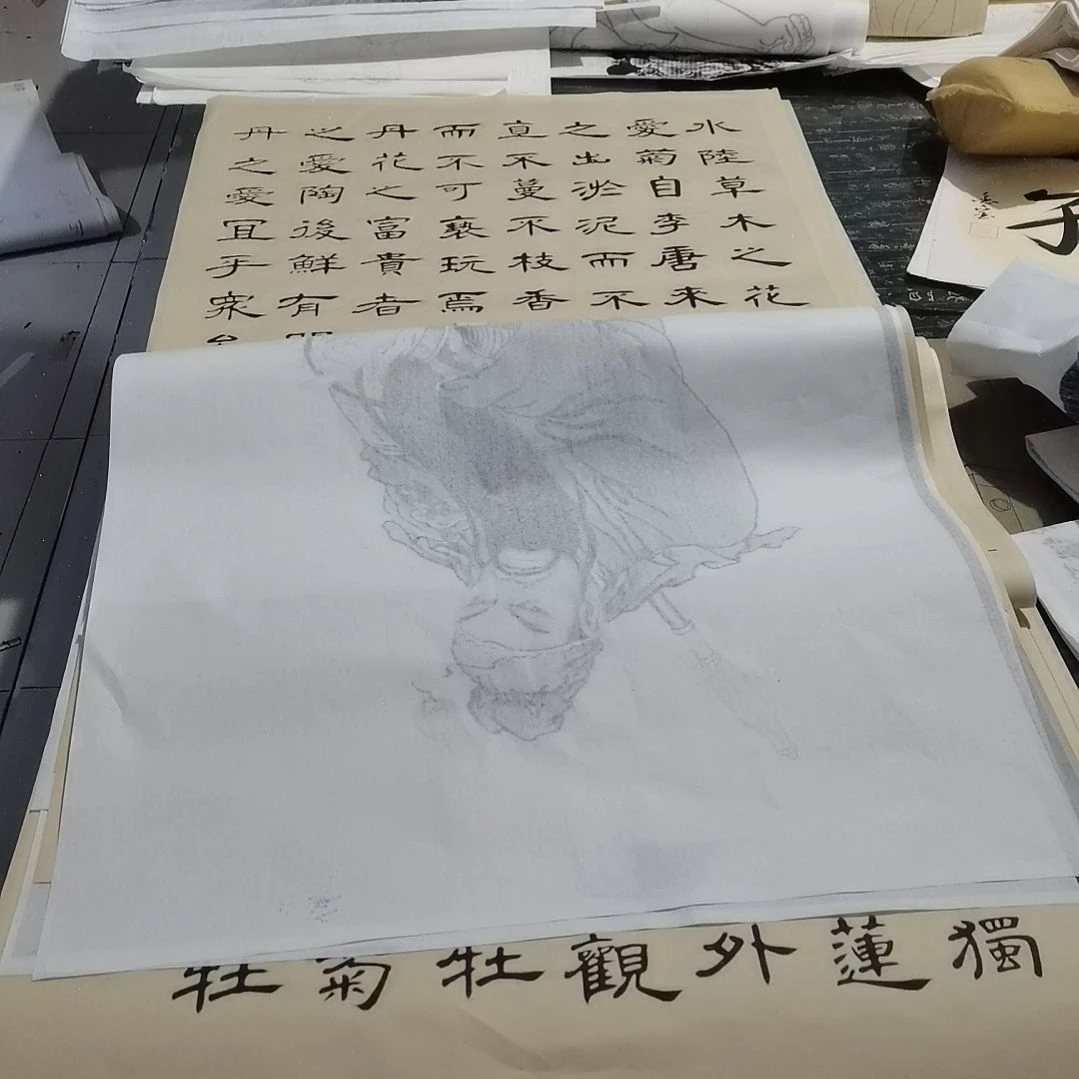 水陸草木之花獨
愛菊自李唐來蓮
之出淤泥而不外
直不蔓不枝香觀
而不可褻玩焉牡
丹花之富貴者菊
之愛陶後鮮有牡
丹之愛宜乎眾